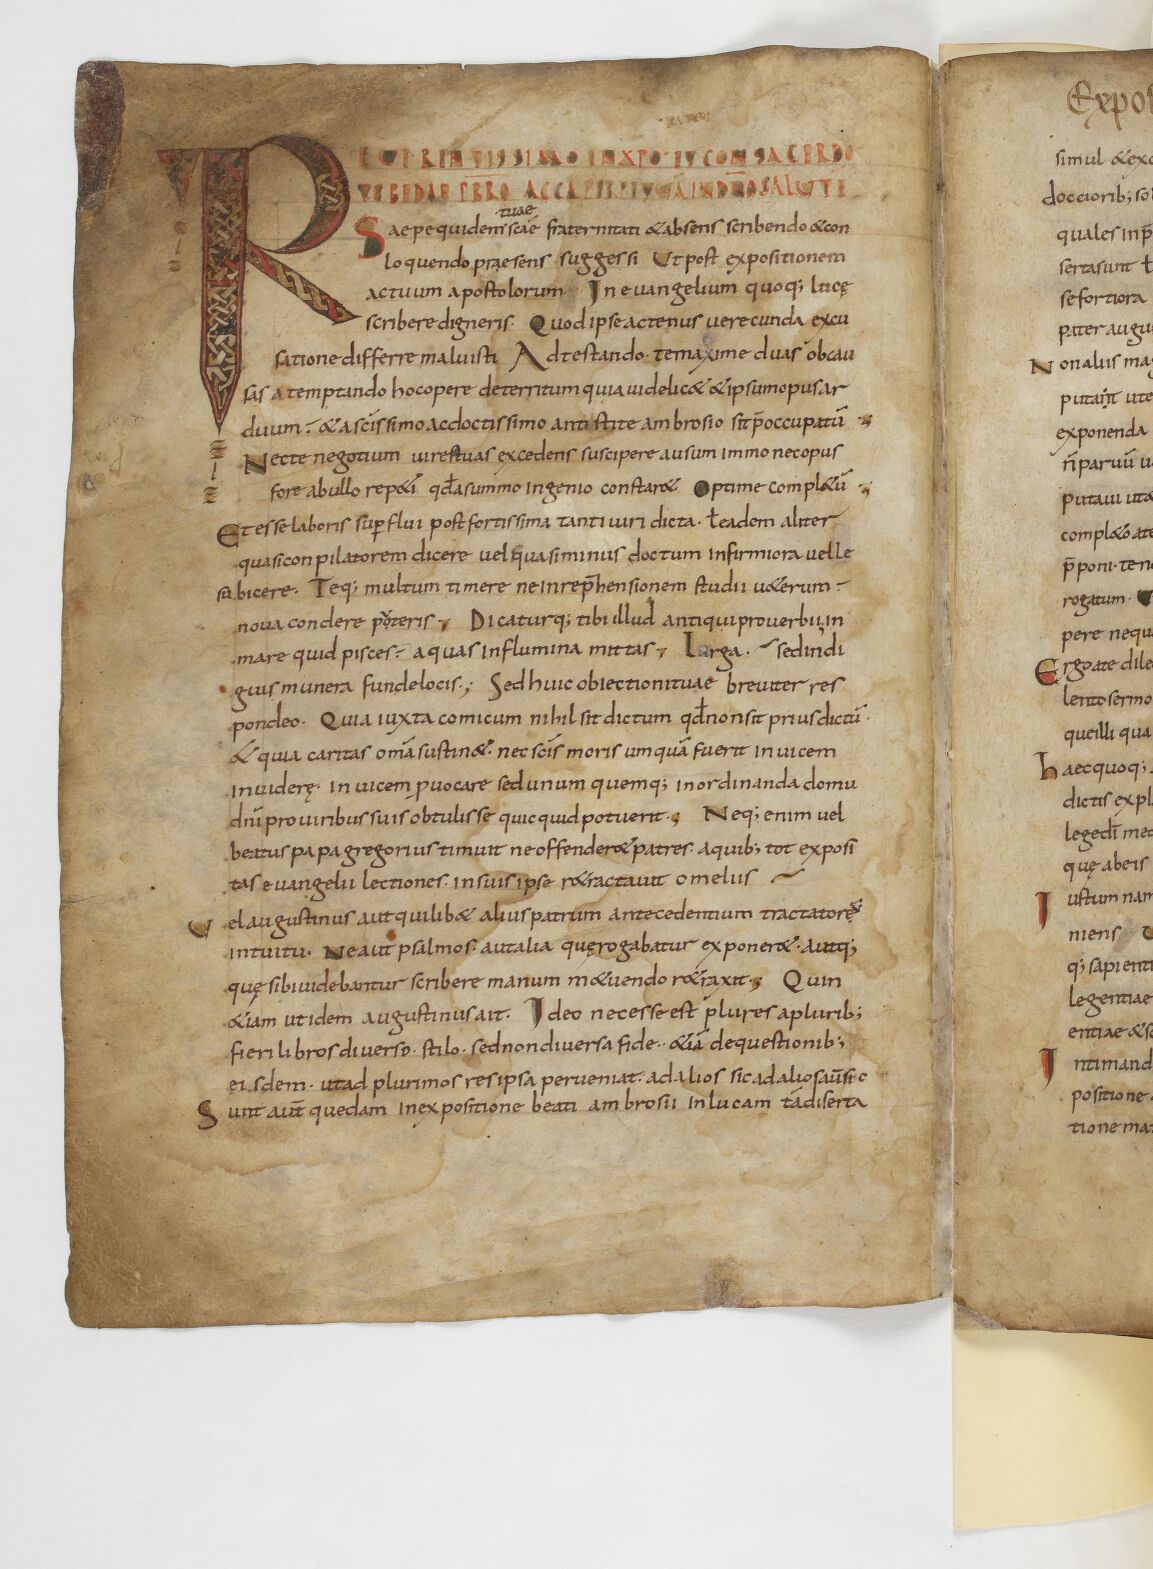 REUERENTISSIMO INXPO ET CONSACERDO
TI BEDAE PRRO ACCA
Saepe quidem scāe tuae fraternitati & absens scribendo & con
loquendo praesens suggessi Ut post expositionem
actuum apostolorum In euangelium quoq; lucę
scribere digneris. Quod ipse actenus uerecunda excu
satione differre maluisti Adtestando. te maxime duas obcau
sas a temptando hoc opere deterritum quia uidelic& & ipsum opus ar
duum. & a scīssimo ac doctissimo antistite ambrosio sit p̄occupatū
Nec te negotium uires tuas excedens suscipere ausum immo nec opus
fore ab ullo rep&i qđ a summo ingenio constar& Optime compl&ū
Et esse laboris superflui post fortissima tanti uiri dicta. ł eadem aliter
quasi conpilatorem dicere uel quasi minus doctum infirmiora uelle
subicere. Teq; multum timere ne in rep̄hensionem studii u&erum
noua condere poteris. Dicatur q; tibi illud antiqui prouerbii, in
mare quid pisces aquas in flumina mittas; Larga. sed indi
guis munera funde locis.; Sed huic obiectioni tuae breuiter res
pondeo. Quia iuxta comicum nihil sit dictum qđ non sit prius dictū.
& quia caritas omā sustin&. nec scīs moris umquā fuerit inuicem
inuiderę. inuicem puocare sed unum quemq; in ordinanda domu
dnī pro uiribus suis obtulisse quicquid potuerit.; Neq; enim uel
beatus papa gregorius timuit ne offender& patres. a quib; tot exposi
tas euangelii lectiones. in suis ipse r&ractauit omeliis
Uel augustinus aut quilib& alius patrum antecedentium tractatorēs
intuitu. Ne aut psalmos. aut alia quę rogabatur exponer&. autq;
quę sibi uidebantur scribere manum m&uendo r&raxit.; Quin
&iam ut idem augustinus ait. Ideo necesse est plures a plurib;
fieri libros diuerso. stilo. sed non diuersa fide. &iā de questionib;
eisdem. ut ad plurimos res ipsa perueniat. ad alios sic ad alios aūt sic
Sunt aūt quedam in expositione beati ambrosii in lucam tā diserta
Expos
simul & exc
doctorib; so
quales in p̄
fertasunt ł
se fortiora
piter augu
Non alius mag
putar̄t ute
exponenda
n̄ paruū u
putaui uta
compl&o ate
p̄poni. tenc
rogatum. U
pere nequ
Ergo a te dile
lento sermo
queilli qua
haec quoq;.
dictis expl
legedī med
quę abeis
Iustum nam
niens U
q; sapienti
legentiae
entiae & sc
Intimand
positione
tione ma